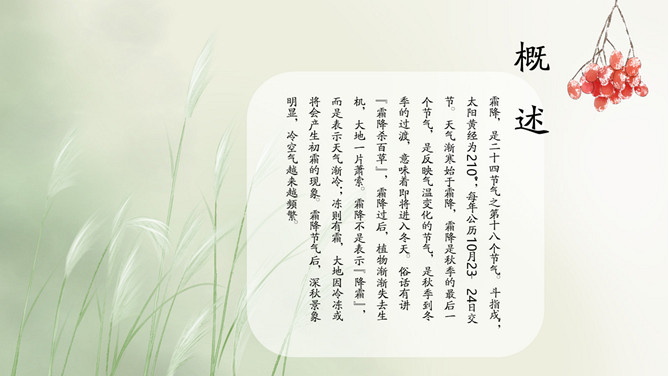 概述
霜降，是二十四节气之第十八个节气。斗指戌；
太阳黄经为210°，每年公历10月23 24日交
节。天气渐寒始于霜降，霜降是秋季的最后一
个节气，是反映气温变化的节气，是秋季到冬
季的过渡，意味着即将进入冬天。俗话有讲
『霜降杀百草』，霜降过后，植物渐渐失去生
机，大地一片萧索。霜降不是表示『降霜』，
而是表示天气渐冷；冻则有霜，大地因冷冻或
将会产生初霜的现象。霜降节气后，深秋景象
明显，冷空气越来越频繁。